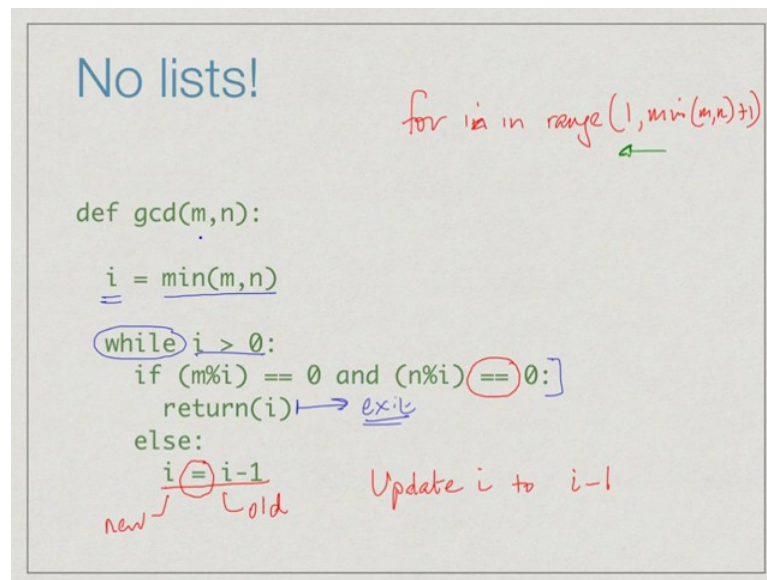 No lists!
for i in range (1, min(m,n)+1)
def gcd(m,n):
i = min(m,n)
while i > 0:
if (m%i) == 0 and (n%i) == 0:
return(i) exit
else:
i = i-1
Update i to i-1
new old